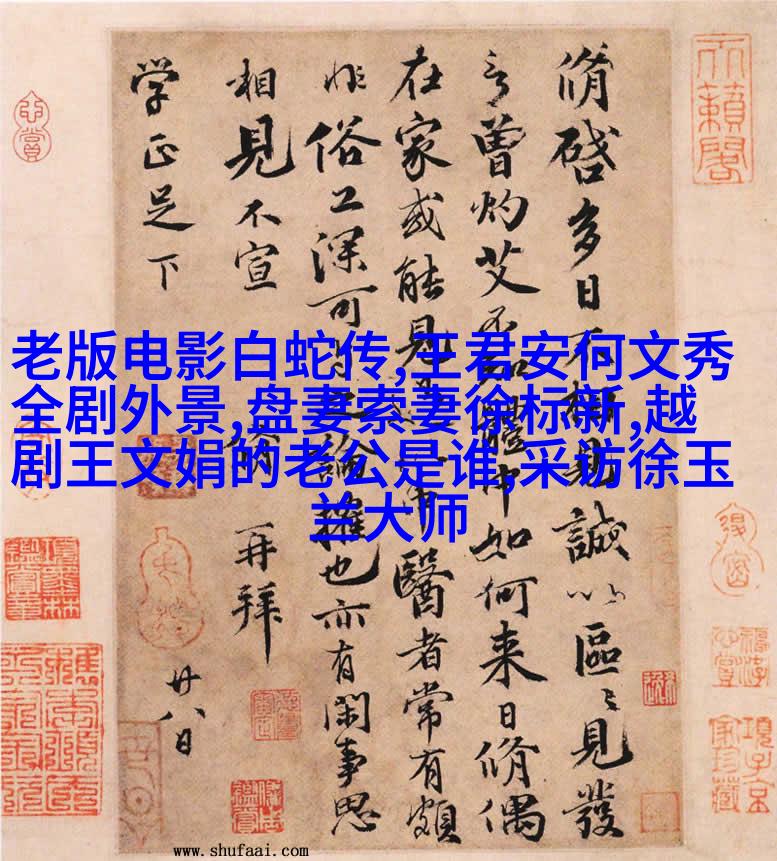 老版电影白蛇传,王君安何文秀
全剧外景,盘妻索妻徐标新,越
剧王文娟的老公是谁,采访徐玉
兰大师
脩啓多日不相見誠以區〻見發
言曾灼艾不知體中如何来日脩偶
在家或能見中醫者常有頗
非俗工深可論榷也亦有閑事思
相見不宣
脩
再拜
廿八日
学正足下
天籟閣
www.shufaai.com